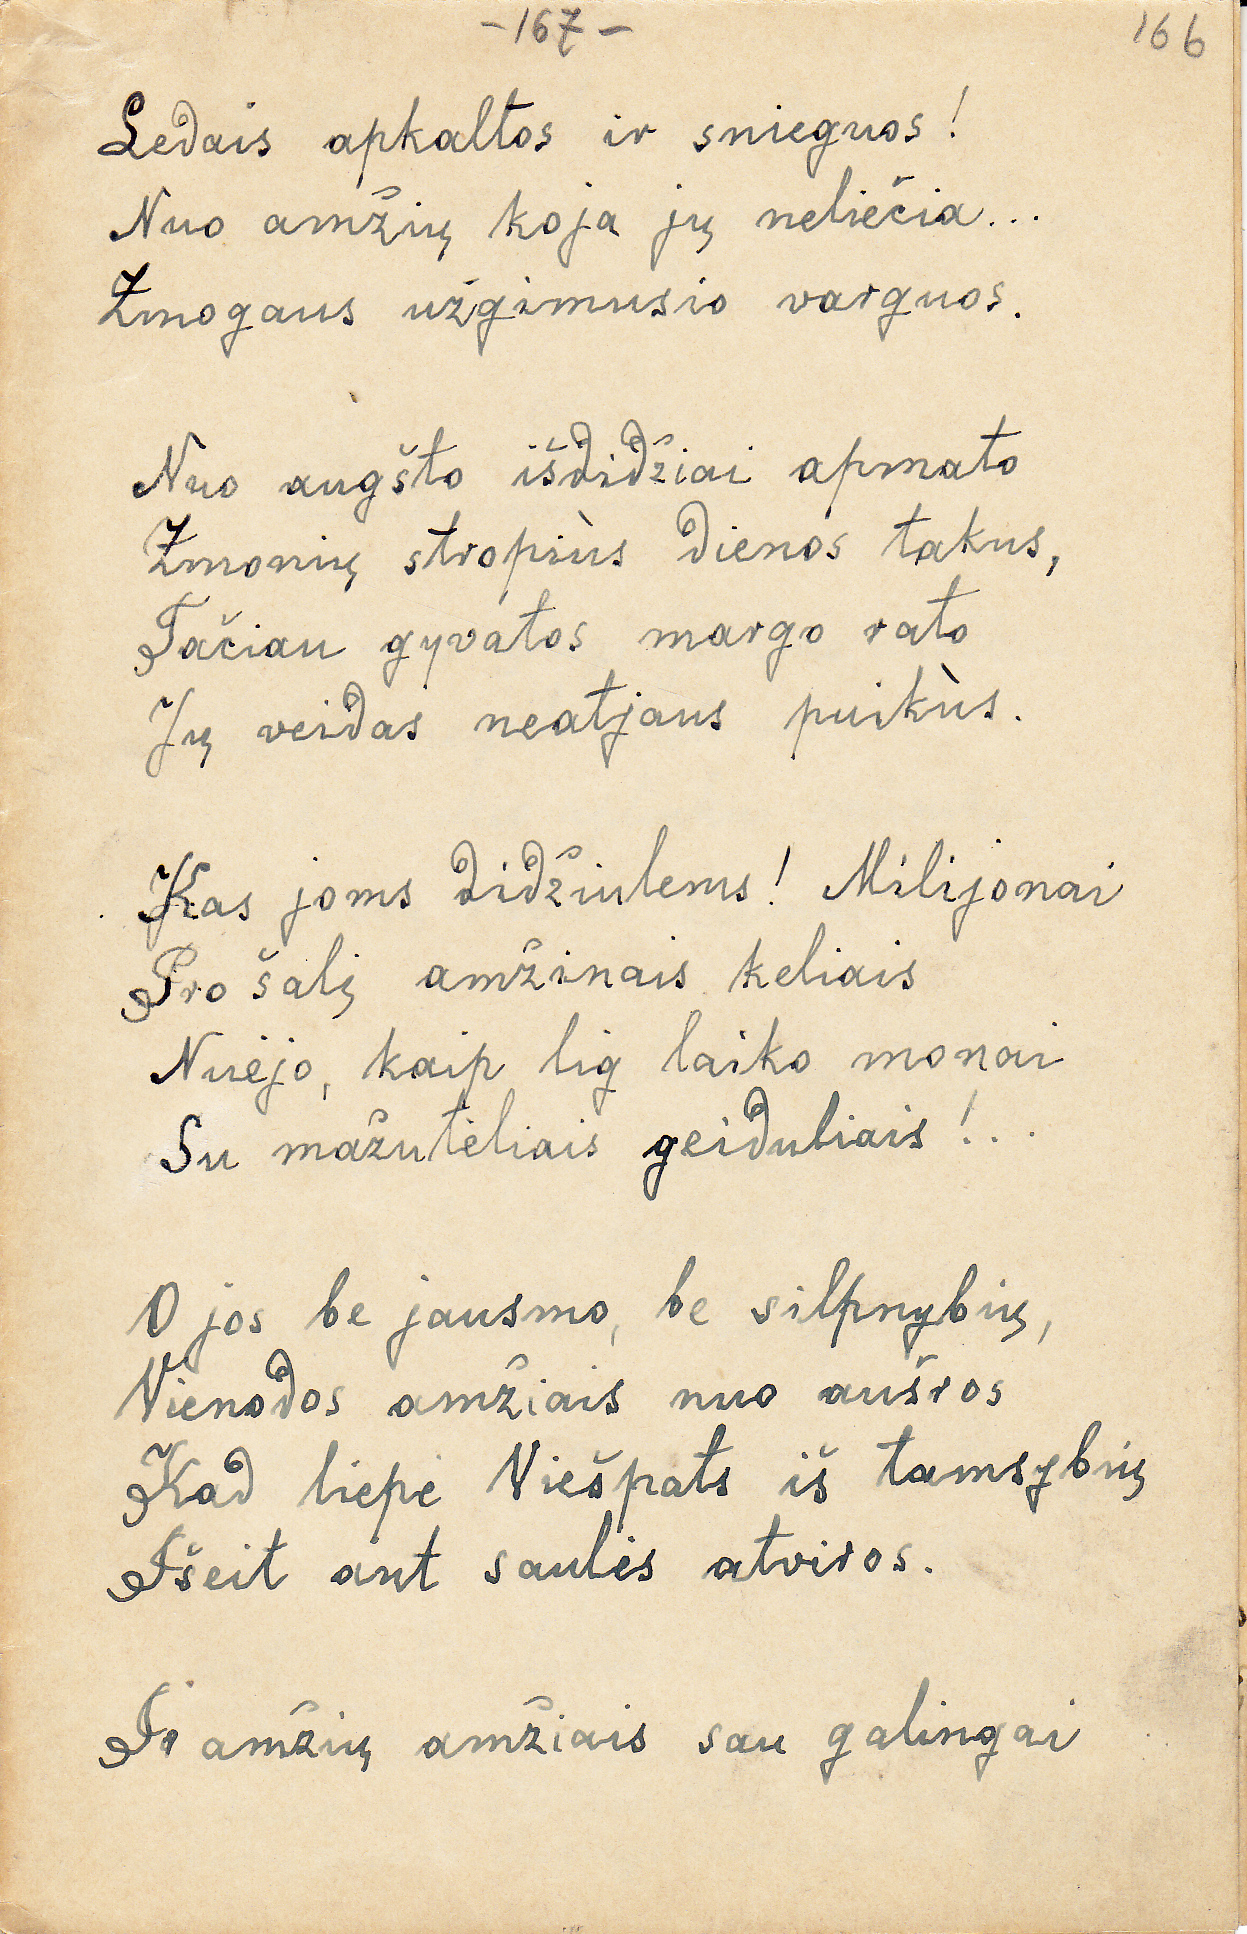 -167-
166
Ledais apkaltos ir snieguos!
Nuo amžių koja jų neliečia...
Žmogaus užgimusio varguos.
Nuo augšto išdidžiai apmato
Žmonių stropiùs dienos takus,
Tačiau gyvatos margo rato
Jų veidas neatjaus puikùs.
Kas joms didžiulems! Milijonai
Pro šalį amžinais keliais
Nuėjo, kaip lig laiko monai
Su mažutėliais geiduliais!...
O jos be jausmo, be silpnybių,
Vienodos amžiais nuo aušros
Kad liepė Viešpats iš tamsybių
Išeit ant saulės atviros.
Ir amžių amžiais sau galingai